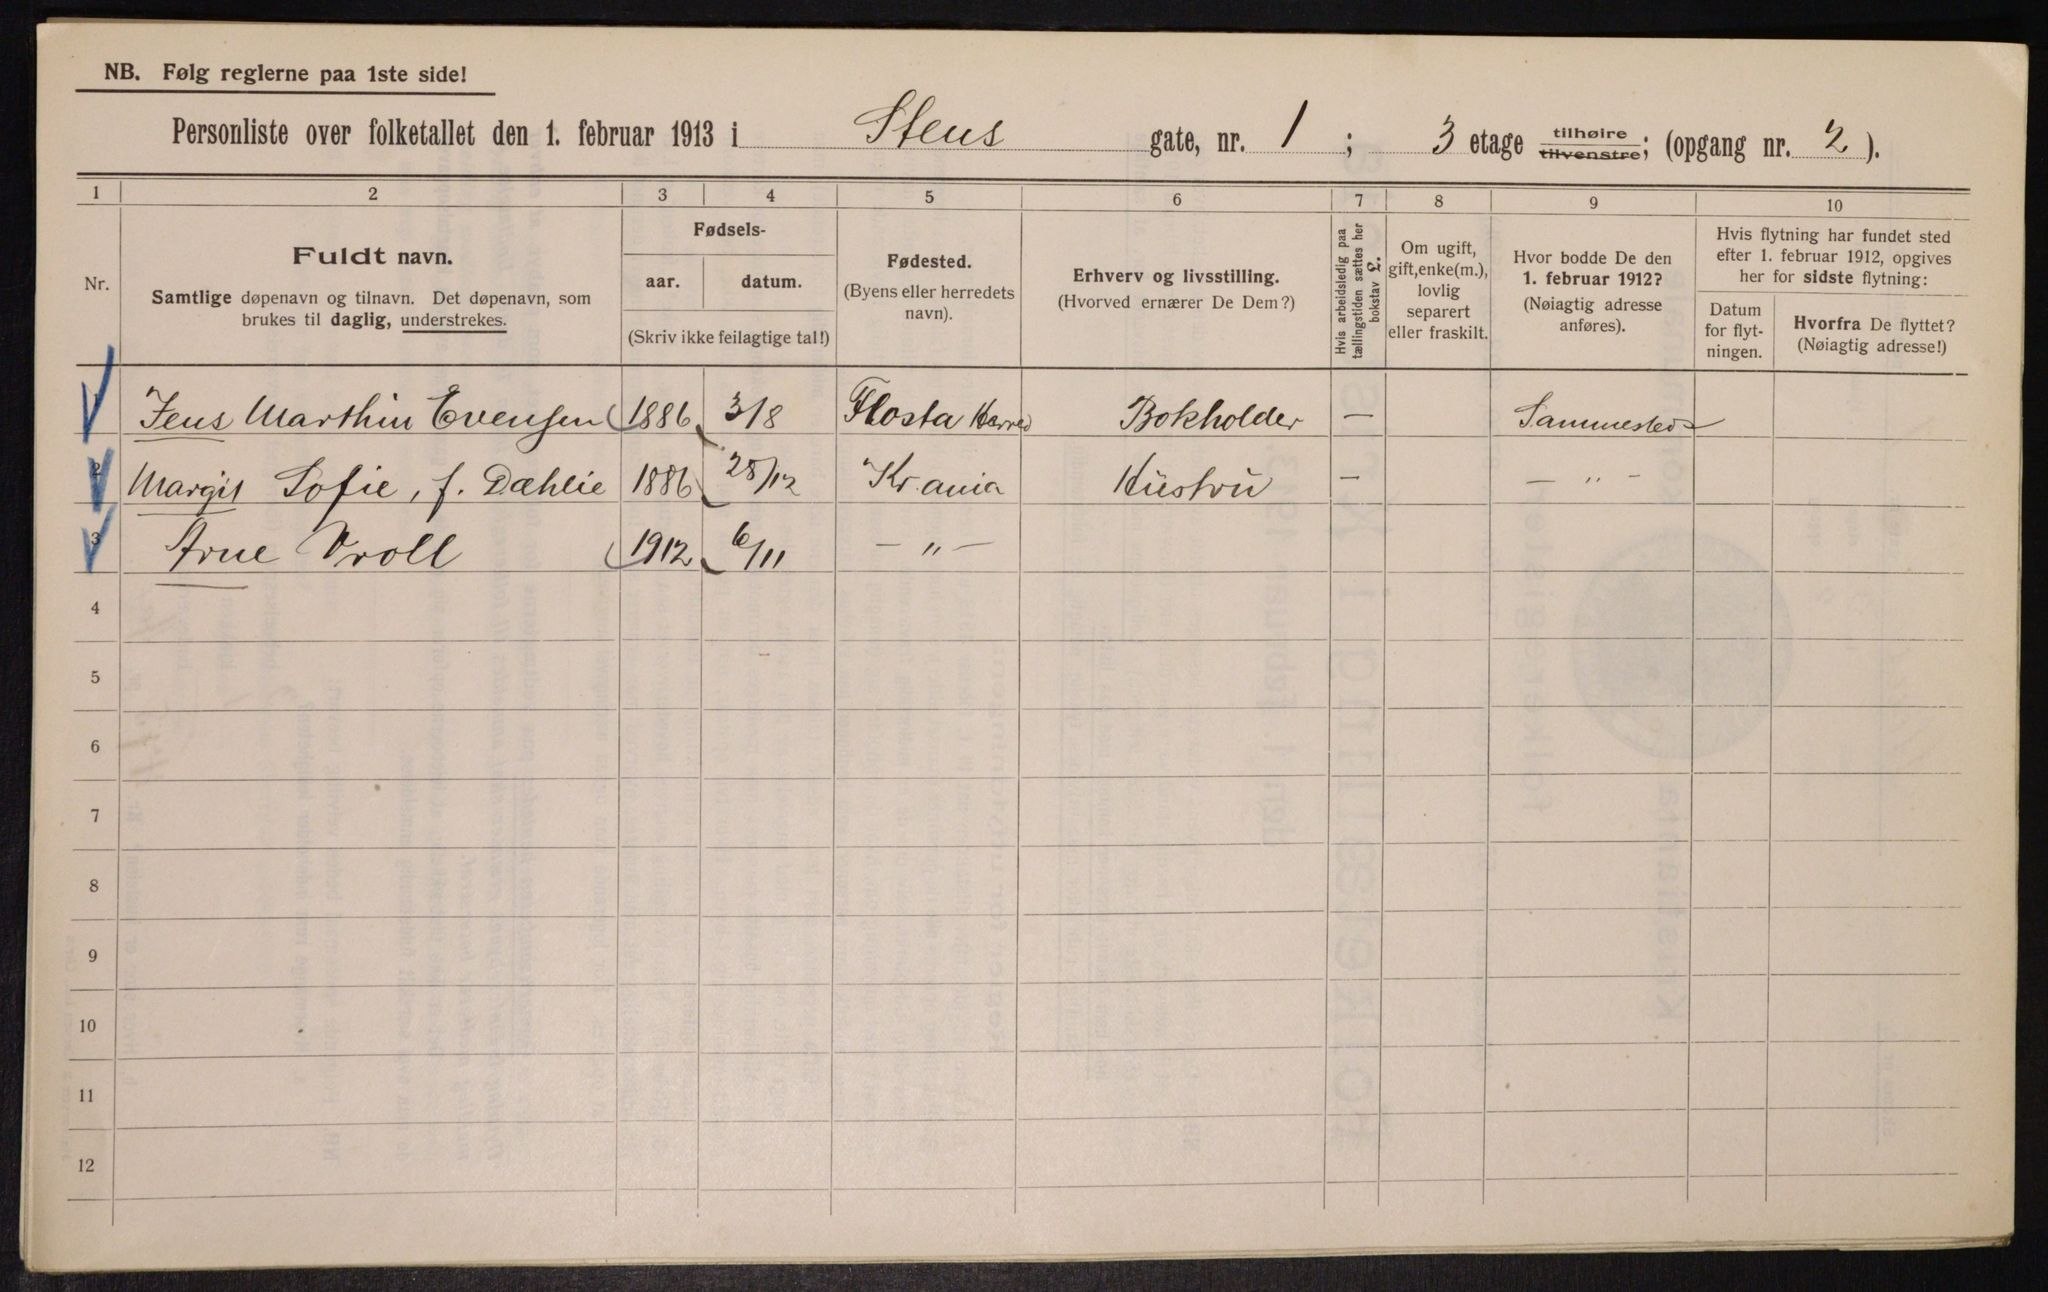 NB. Følg reglerne paa 1ste side!
Personliste over folketallet den 1. februar 1913 i Stens gate, nr. 1 ; 3 etage tilhøire tilvenstre; (opgang nr. 2 ).
1 2 3 4 5 6 7 8 9 10
Nr.
Fuldt navn.
Samtlige døpenavn og tilnavn. Det døpenavn, som
brukes til daglig, understrekes.
Fødsels-
aar. datum.
(Skriv ikke feilagtige tal!)
Fødested.
(Byens eller herredets
navn).
Erhverv og livsstilling.
(Hvorved ernærer De Dem?)
Hvis arbeidsledig paa
tællingstiden sættes her
bokstav L.
Om ugift,
gift, enke(m.),
lovlig
separert
eller fraskilt.
Hvor bodde De den
1. februar 1912?
(Nøiagtig adresse
anføres).
Hvis flytning har fundet sted
efter 1. februar 1912, opgives
her for sidste flytning:
Datum
for flyt-
ningen.
Hvorfra De flyttet?
(Nøiagtig adresse!)
1 Jens Marthin Evensen 1886 3/8 Flosta Herred Bokholder — Sammesteds
2 Margit Sofie, f. Dæhlie 1886 28/12 Kr.ania Hüstrü — — „ —
3 Arne Vroll 1912 6/11 — „ —
4
5
6
7
8
9
10
11
12